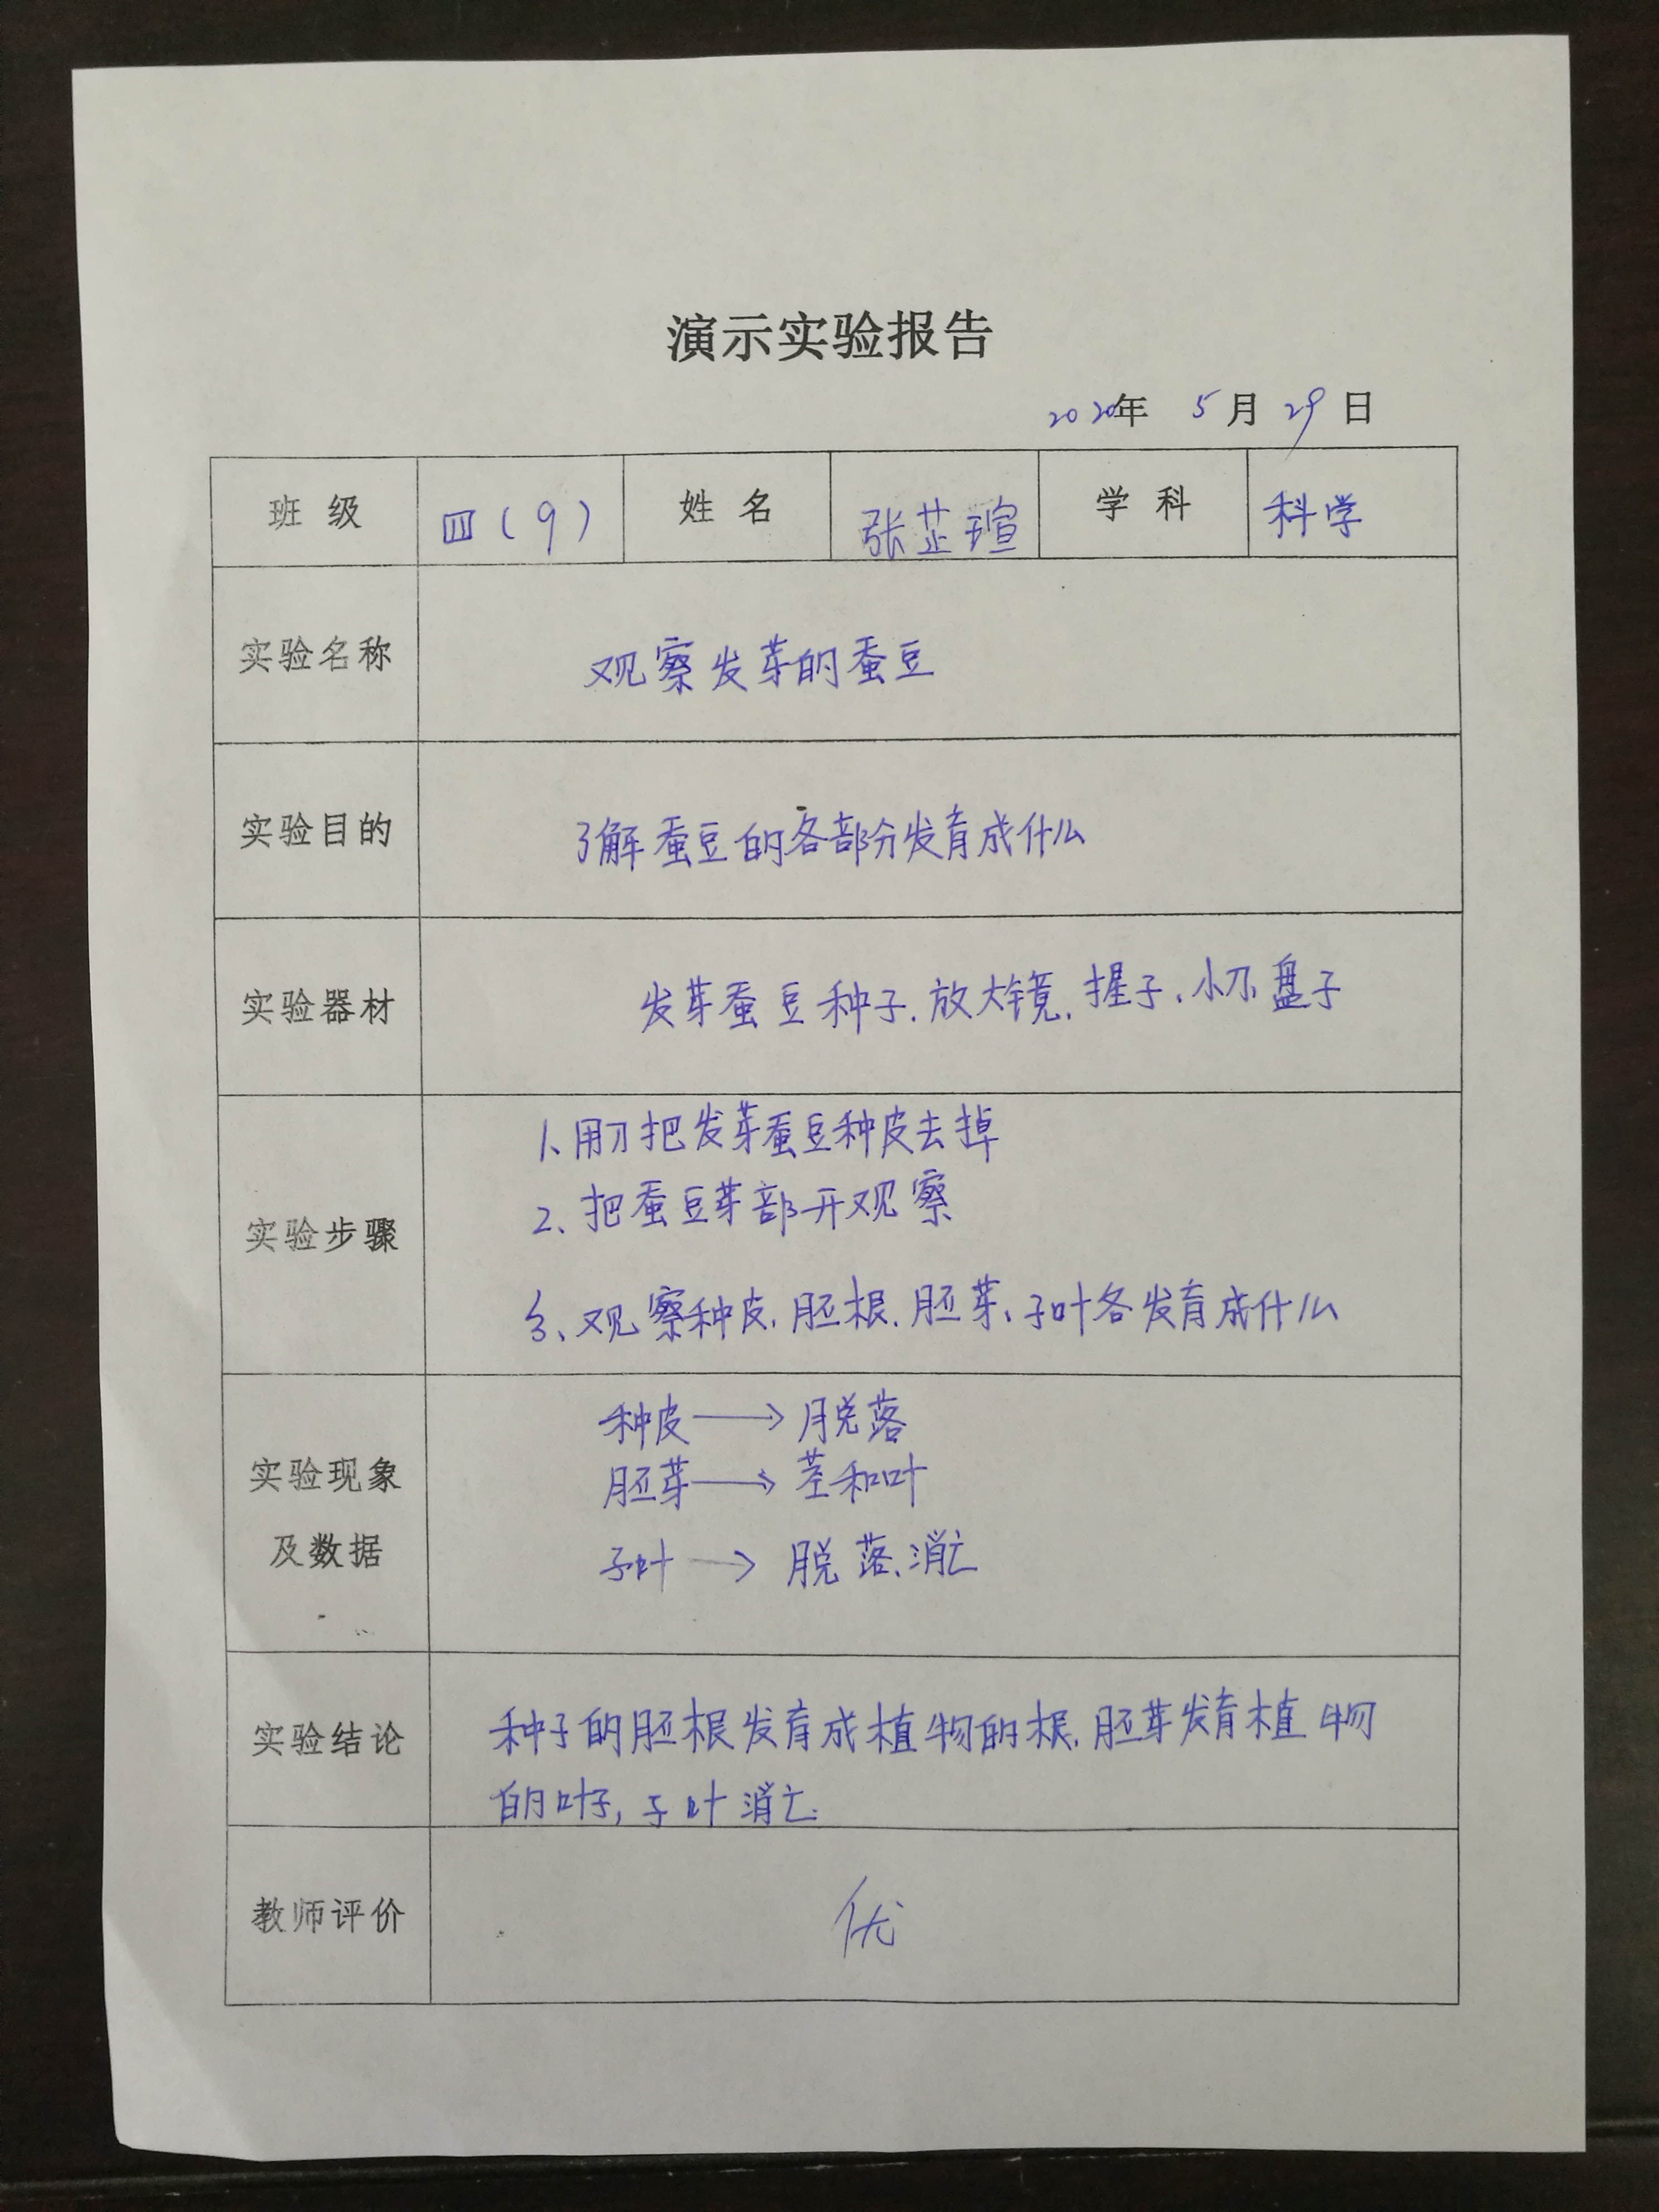 演示实验报告
2020年 5月29日
班级 四(9) 姓名 张芷瑄 学科 科学
实验名称 观察发芽的蚕豆
实验目的 了解蚕豆的各部分发育成什么
实验器材 发芽蚕豆种子.放大镜.握子、小刀、盘子
实验步骤
1、用刀把发芽蚕豆种皮去掉
2、把蚕豆芽部开观察
3、观察种皮.胚根.胚芽、子叶各发育成什么
实验现象
及数据
种皮→脱落
胚芽→茎和叶
子叶→脱落、消亡
实验结论
种子的胚根发育成植物的根.胚芽发育植物
的叶子,子叶消亡.
教师评价 优